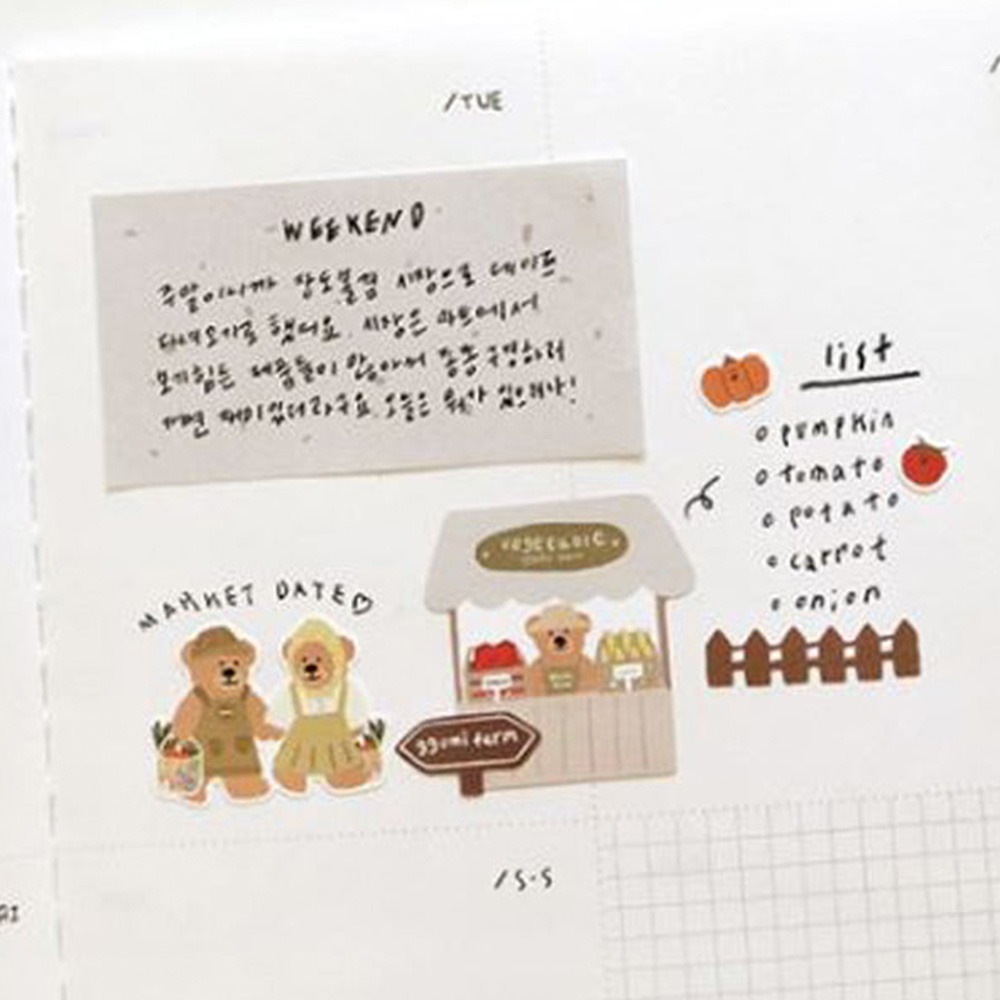 /TUE
WEEKEND
주말이니까 장도볼겸 시장으로 데이트
다녀오기로 했어요. 시장은 마트에서
보기힘든 제품들이 많아서 종종 구경하러
가면 재미있더라구요 오늘은 뭐가 있으려나!
list
o pumpkin
o tomato
o potato
o carrot
o onion
MARKET DATE♡
vegetable
ggumi farm
/S·S